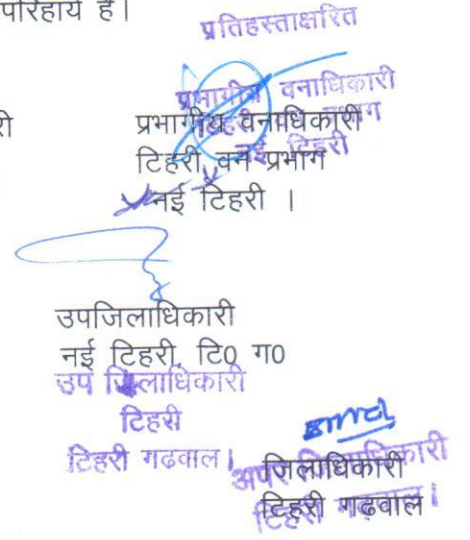 परिहार्य है।
प्रतिहस्ताक्षरित
प्रभागीय वनाधिकारी
नई टिहरी
री
प्रभागीय वनाधिकारी
टिहरी वन प्रभाग
नई टिहरी ।
उपजिलाधिकारी
नई टिहरी, टि0 ग0
उप जिलाधिकारी
टिहरी
टिहरी गढवाल।
अपर जिलाधिकारी
टिहरी गढवाल।
जिलाधिकारी
टिहरी गढवाल